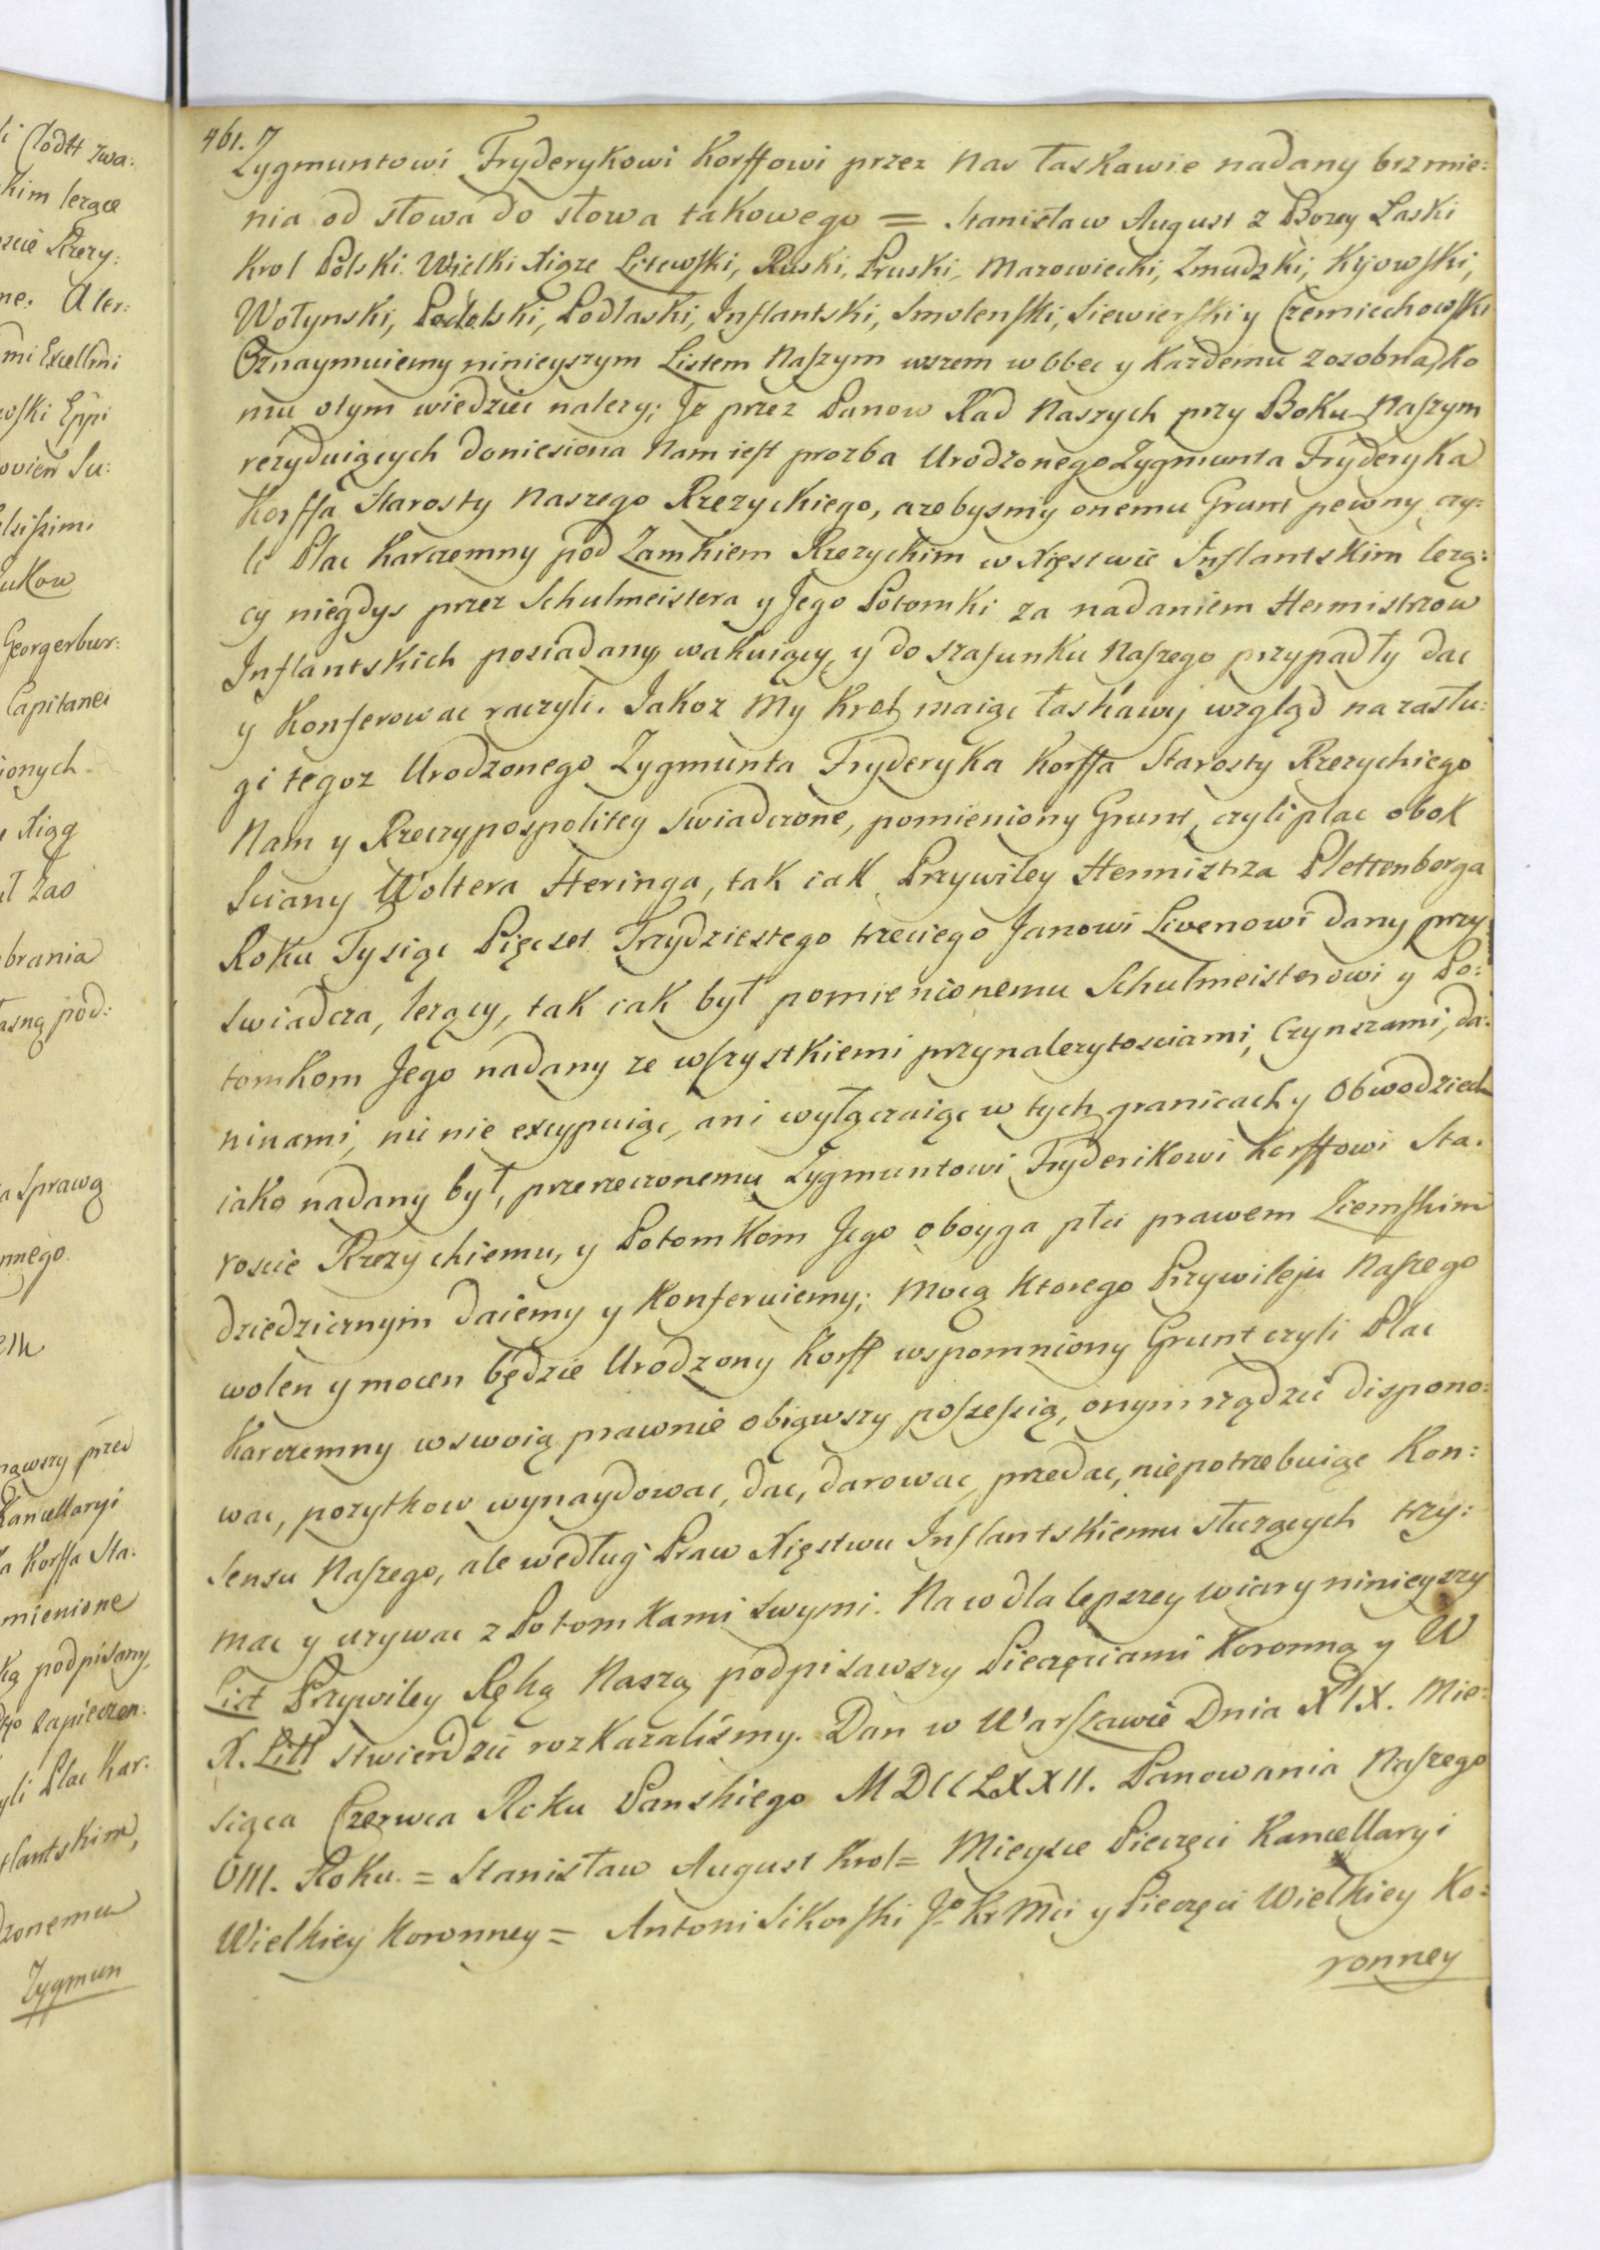 461.
Zygmuntowi Fryderykowi Korffowi przez Nas łaskawie nadany brzmie:
nia od słowa do słowa takowego = Stanisław August z Bozey Łaski
Krol Polski. Wielki Xiąze Litewski, Ruski, Pruski, Mazowiecki, Zmudzki, Kyiowski,
Wołynski, Podolski, Podlaski, Inflantski, Smolenski, Siewierski y Czerniechowski
Oznaymuiemy ninieyszym Listem Naszym wszem w obec y Kazdemu z osobna, ko
mu otym wiedziec nalezy; Jz przez Panow Rad Naszych przy Boku Naszym
rezyduiących doniesiona Nam iest prozba Urodzonego Zygmunta Fryderyka
Korffa Starosty Naszego Rzezyckiego, azebysmy onemu Grunt pewny czy:
li Plac Karczemny pod Zamkiem Rzezyckim w Xięstwie Inflantskim lezą:
cy niegdys przez Schulmeistera y Jego Potomki za nadaniem Hermistrzow
Inflantskich posiadany, wakuiący, y do szafunku Naszego przypadły dac
y Konferowac raczyli. Jakoz My Krol maiąc łaskawy wzgląd na zasłu:
gi tegoz Urodzonego Zygmunta Fryderyka Korffa Starosty Rzezyckiego
Nam y Rzeczypospolitey swiadczone, pomieniony Grunt, czyli plac obok
Sciany Woltera Heringa, tak iak Przywiley Hermistrza Plettenberga
Roku Tysiąc Pięcset Trzydziestego trzeciego Janowi Livenowi dany przy:
swiadcza, lezący, tak iak był pomienionemu Schulmeisterowi y Po:
tomkom Jego nadany ze wszystkiemi przynalezytosciami, Czynszami, da:
ninami, nic nie excypuiąc, ani wyłączaiąc w tych granicach y Obwodziech
iako nadany był, przerzeczonemu Zygmuntowi Fryderikowi Korffowi Sta:
roscie Rzezyckiemu, y Potomkom Jego oboyga płci prawem Ziemskim
dziedzicznym daiemy y Konferuiemy; Mocą Ktorego Przywileju Naszego
wolen y mocen będzie Urodzony Korff wspomniony Grunt czyli Plac
Karczemny w swoią prawnie obiąwszy possessią, onym rządzić dispono:
wac, pozytkow wynaydowac, dac, darowac, przedac, nie potrzebuiąc Kon:
sensu Naszego, ale według Praw Xięstwu Inflantskiemu słuzących trzy:
mac y uzywac z Potomkami swymi. Na co dla lepszey wiary ninieyszy
List Przywiley Ręką Naszą podpisawszy Pieczęciami Koronną y W
X. Litt stwierdzić rozkazalismy. Dan w Warszawie Dnia XIX. Mie:
siąca Czerwca Roku Panskiego MDCCLXXII. Panowania Naszego
VIII. Roku. = Stanisław August Krol = Mieysce Pieczęci Kancellaryi
Wielkiey Koronney = Antoni Sikorski Jo Kr Mci y Pieczęci Wielkiey Ko:
ronney